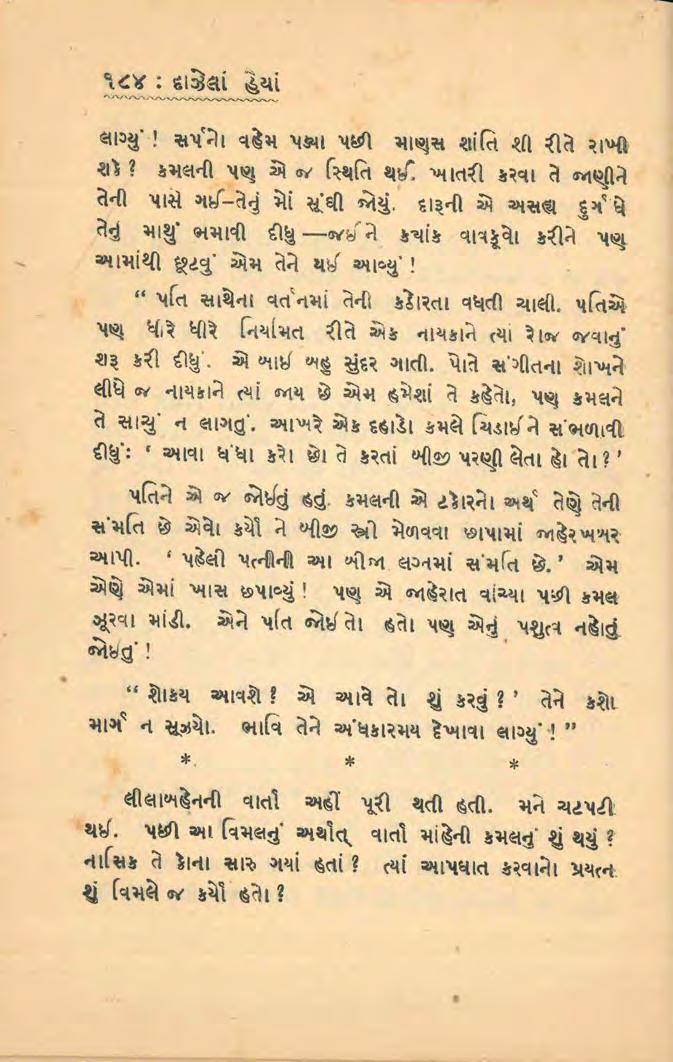 ૧૮૪ : દાઝેલાં હૈયાં
લાગ્યું ! સર્પનો વહેમ પડ્યા પછી માણસ શાંતિ શી રીતે રાખી
શકે ? કમલની પણ એ જ સ્થિતિ થઈ. ખાતરી કરવા તે જાણીને
તેની પાસે ગઈ–તેનું મોં સૂંઘી જોયું. દારૂની એ અસહ્ય દુર્ગંધે
તેનું માથું ભમાવી દીધુ —જઈને ક્યાંક વાવકૂવો કરીને પણ
આમાંથી છૂટવું એમ તેને થઈ આવ્યું !
“ પતિ સાથેના વર્તનમાં તેની કઠોરતા વધતી ચાલી. પતિએ
પણ ધીરે ધીરે નિયમિત રીતે એક નાયકાને ત્યાં રોજ જવાનું
શરૂ કરી દીધું. એ બાઈ બહુ સુંદર ગાતી. પોતે સંગીતના શોખને
લીધે જ નાયકાને ત્યાં જાય છે એમ હમેશાં તે કહેતો, પણ કમલને
તે સાચું ન લાગતું. આખરે એક દહાડો કમલે ચિડાઈને સંભળાવી
દીધું: ‘ આવા ધંધા કરો છો તે કરતાં બીજી પરણી લેતા હો તો ? ’
પતિને એ જ જોઈતું હતું. કમલની એ ટકોરનો અર્થ તેણે તેની
સંમતિ છે એવો કર્યો ને બીજી સ્ત્રી મેળવવા છાપામાં જાહેરખબર
આપી. ‘ પહેલી પત્નીની આ બીજા લગ્નમાં સંમતિ છે. ’ એમ
એણે એમાં ખાસ છપાવ્યું ! પણ એ જાહેરાત વાંચ્યા પછી કમલ
ઝૂરવા માંડી. એને પતિ જોઈતો હતો પણ એનું પશુત્વ નહોતું
જોઈતું !
“ શોક્ય આવશે ? એ આવે તો શું કરવું ? ’ તેને કશો
માર્ગ ન સૂઝ્યો. ભાવિ તેને અંધકારમય દેખાવા લાગ્યું ! ”
* * *
લીલાબહેનની વાર્તા અહીં પૂરી થતી હતી. મને ચટપટી
થઈ. પછી આ વિમલનું અર્થાત્ વાર્તા માંહેની કમલનું શું થયું ?
નાસિક તે કોના સારુ ગયાં હતાં ? ત્યાં આપઘાત કરવાનો પ્રયત્ન
શું વિમલે જ કર્યો હતો ?